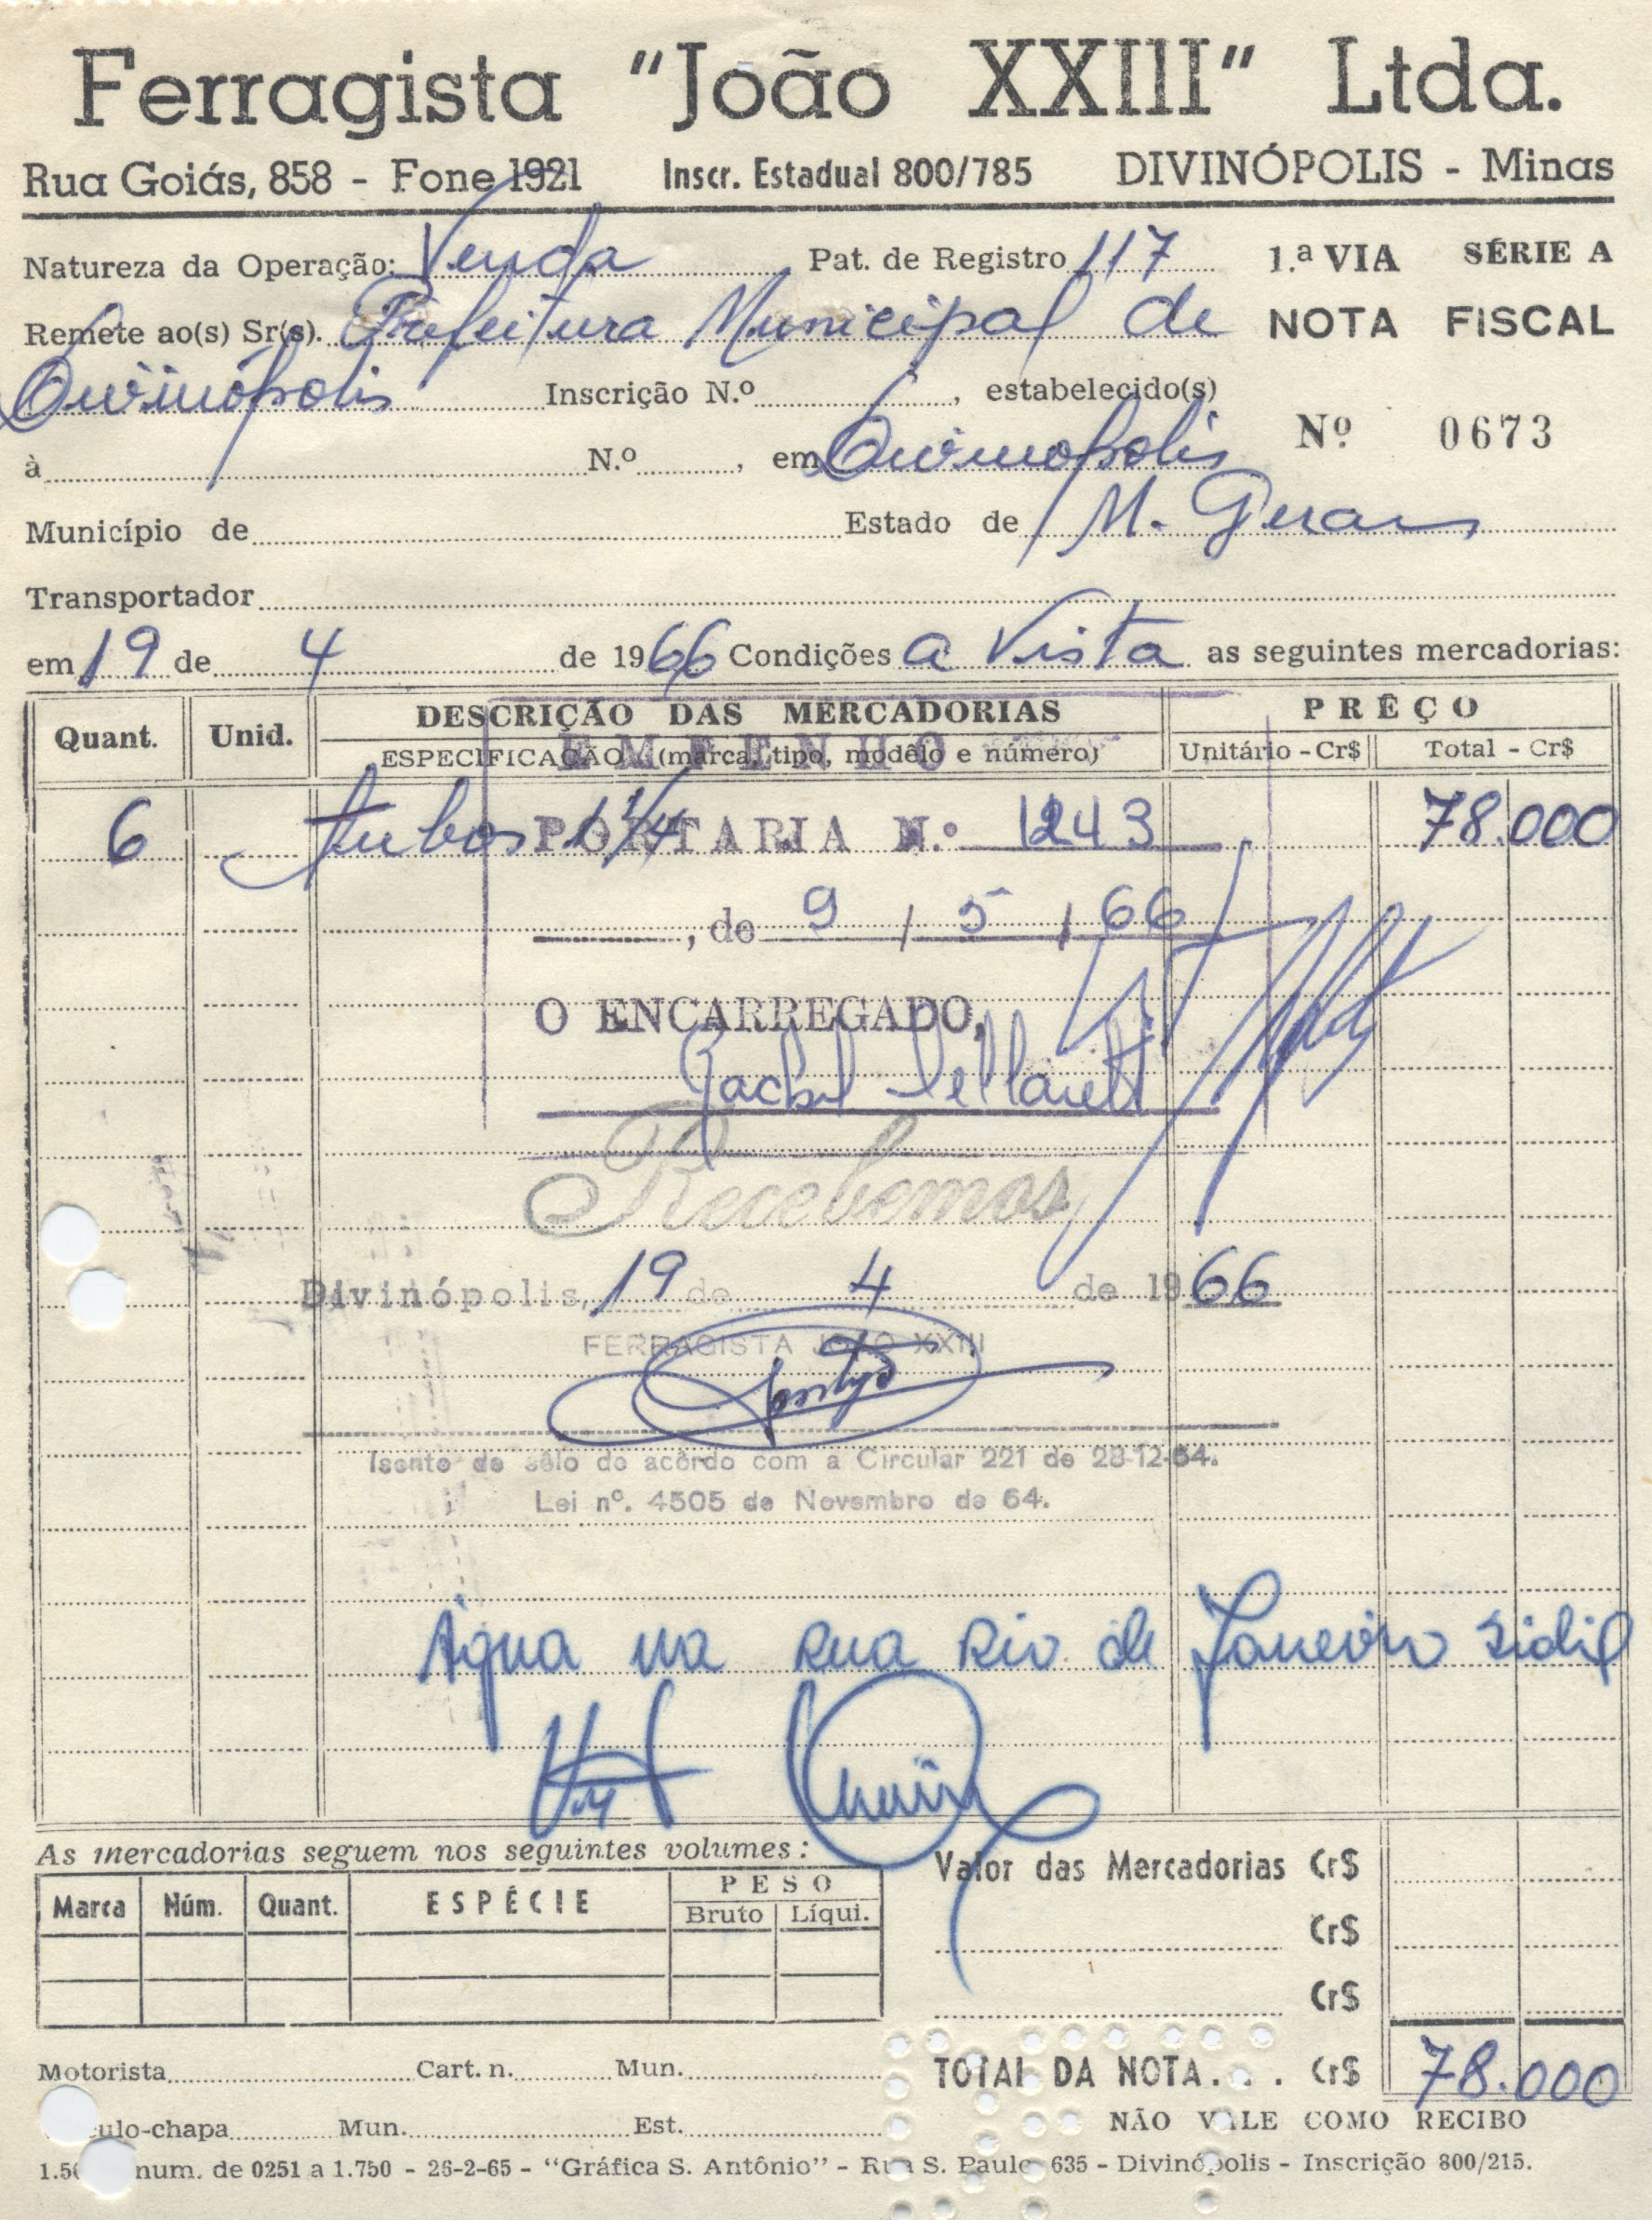 Ferragista "João XXIII" Ltda.
Rua Goiás, 858 - Fone 1921 Inscr. Estadual 800/785 DIVINÓPOLIS - Minas
Natureza da Operação: Venda Pat. de Registro 117 1.ª VIA SÉRIE A
Remete ao(s) Sr(s). Prefeitura Municipal de NOTA FISCAL
Divinópolis Inscrição N.º , estabelecido(s)
à N.º , em Divinopolis Nº 0673
Município de Estado de M. Gerais
Transportador
em 19 de 4 de 1966 Condições a Vista as seguintes mercadorias:
Quant. Unid. DESCRIÇÃO DAS MERCADORIAS PRÊÇO
ESPECIFICAÇÃO (marca, tipo, modêlo e número) Unitário - Cr$ Total - Cr$
EMPENHO
6 tubos 1 1/4 78.000
PORTARIA N.º 1243
, de 9 / 5 / 66
O ENCARREGADO,
Recebemos
Divinópolis, 19 de 4 de 1966
FERRAGISTA JOÃO XXIII
Isento de sêlo de acôrdo com a Circular 221 de 28-12-64.
Lei nº. 4505 de Novembro de 64.
Água na Rua Rio de Janeiro
As mercadorias seguem nos seguintes volumes:
Marca Núm. Quant. ESPÉCIE PESO
Bruto Líqui.
Valor das Mercadorias Cr$
Cr$
Cr$
Motorista Cart. n. Mun. TOTAL DA NOTA. . . Cr$ 78.000
ulo-chapa Mun. Est. NÃO VALE COMO RECIBO
num. de 0251 a 1.750 - 26-2-65 - "Gráfica S. Antônio" - Rua S. Paulo 635 - Divinópolis - Inscrição 800/215.